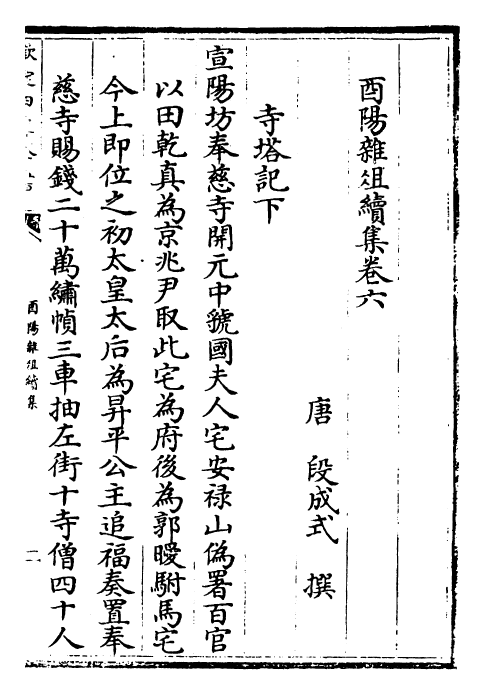 酉陽雜俎續集卷六
唐 段成式 撰
寺塔記下
宣陽坊奉慈寺開元中虢國夫人宅安禄山偽署百官
以田乾真為京兆尹取此宅為府後為郭曖駙馬宅
今上即位之初太皇太后為昇平公主追福奏置奉
慈寺賜錢二十萬繡幀三車抽左街十寺僧四十人
欽定四
酉陽雜俎續集